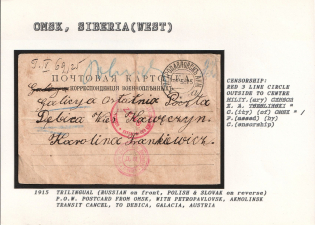 OMSK, SIBERIA(WEST)
ПОЧТОВАЯ КАРТО
КОРРЕСПОНДЕНЦІЯ ВОЕННОПЛѢННЫХЪ
Galicya ostatnia Poczta
Debica Wieś Kawęczyn
Karolina Jankiewicz
CENSORSHIP:
RED 3 LINE CIRCLE
OUTSIDE TO CENTRE
MILIT.(ary) CENSOR
K. A. TMELINSKI *
C.(ity) (of) OMSK * /
P.(assed) (by)
C.(ensorship)
1915 TRILINGUAL (RUSSIAN on front, POLISH & SLOVAK on reverse)
P.O.W. POSTCARD FROM OMSK, WITH PETROPAVLOVSK, AKMOLINSK
TRANSIT CANCEL, TO DEBICA, GALACIA, AUSTRIA